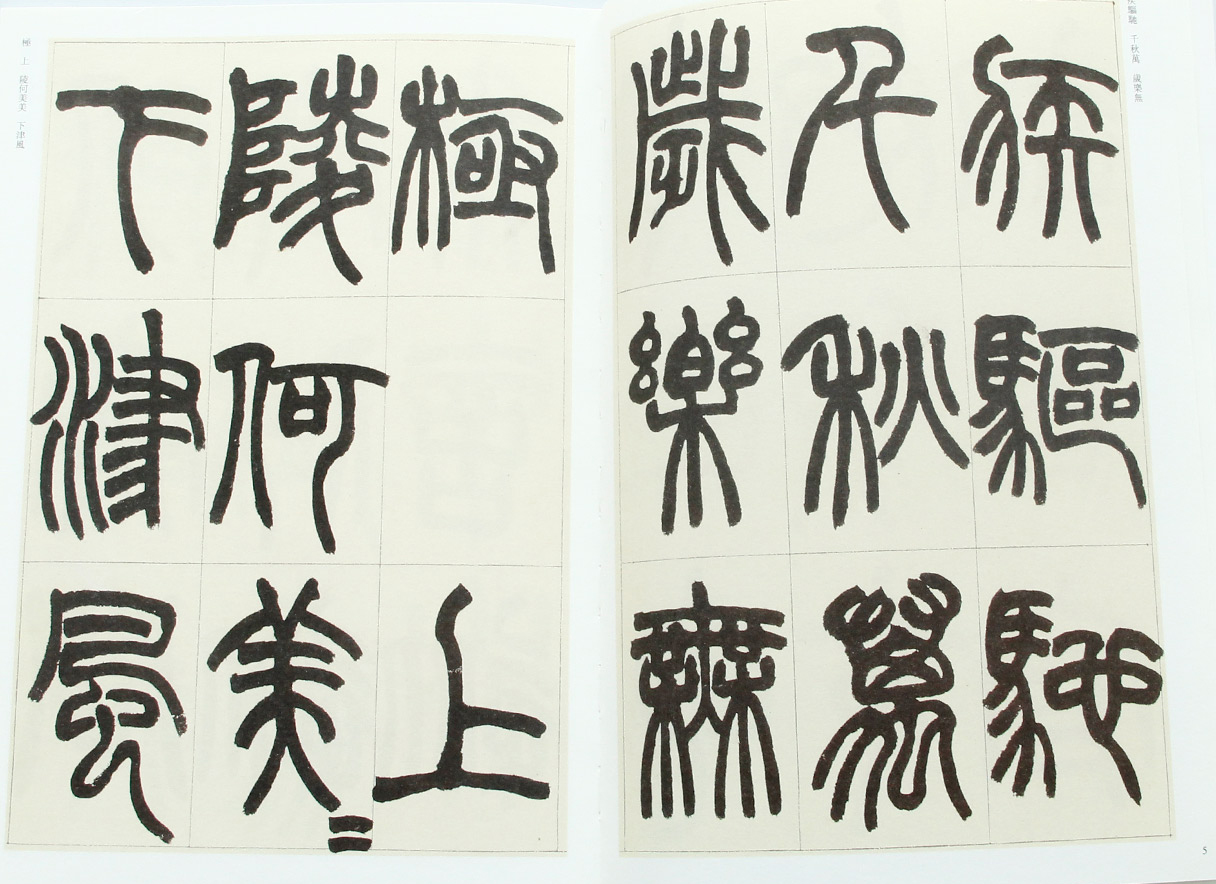 疾驅馳
千秋萬
歲樂無
極 上
陵何美〻
下津風
驅馳 千秋萬 歲樂無
5
極 上 陵何美美 下津風